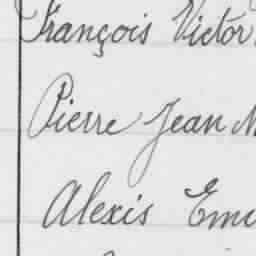 François Victor
Pierre Jean M
Alexis Emi